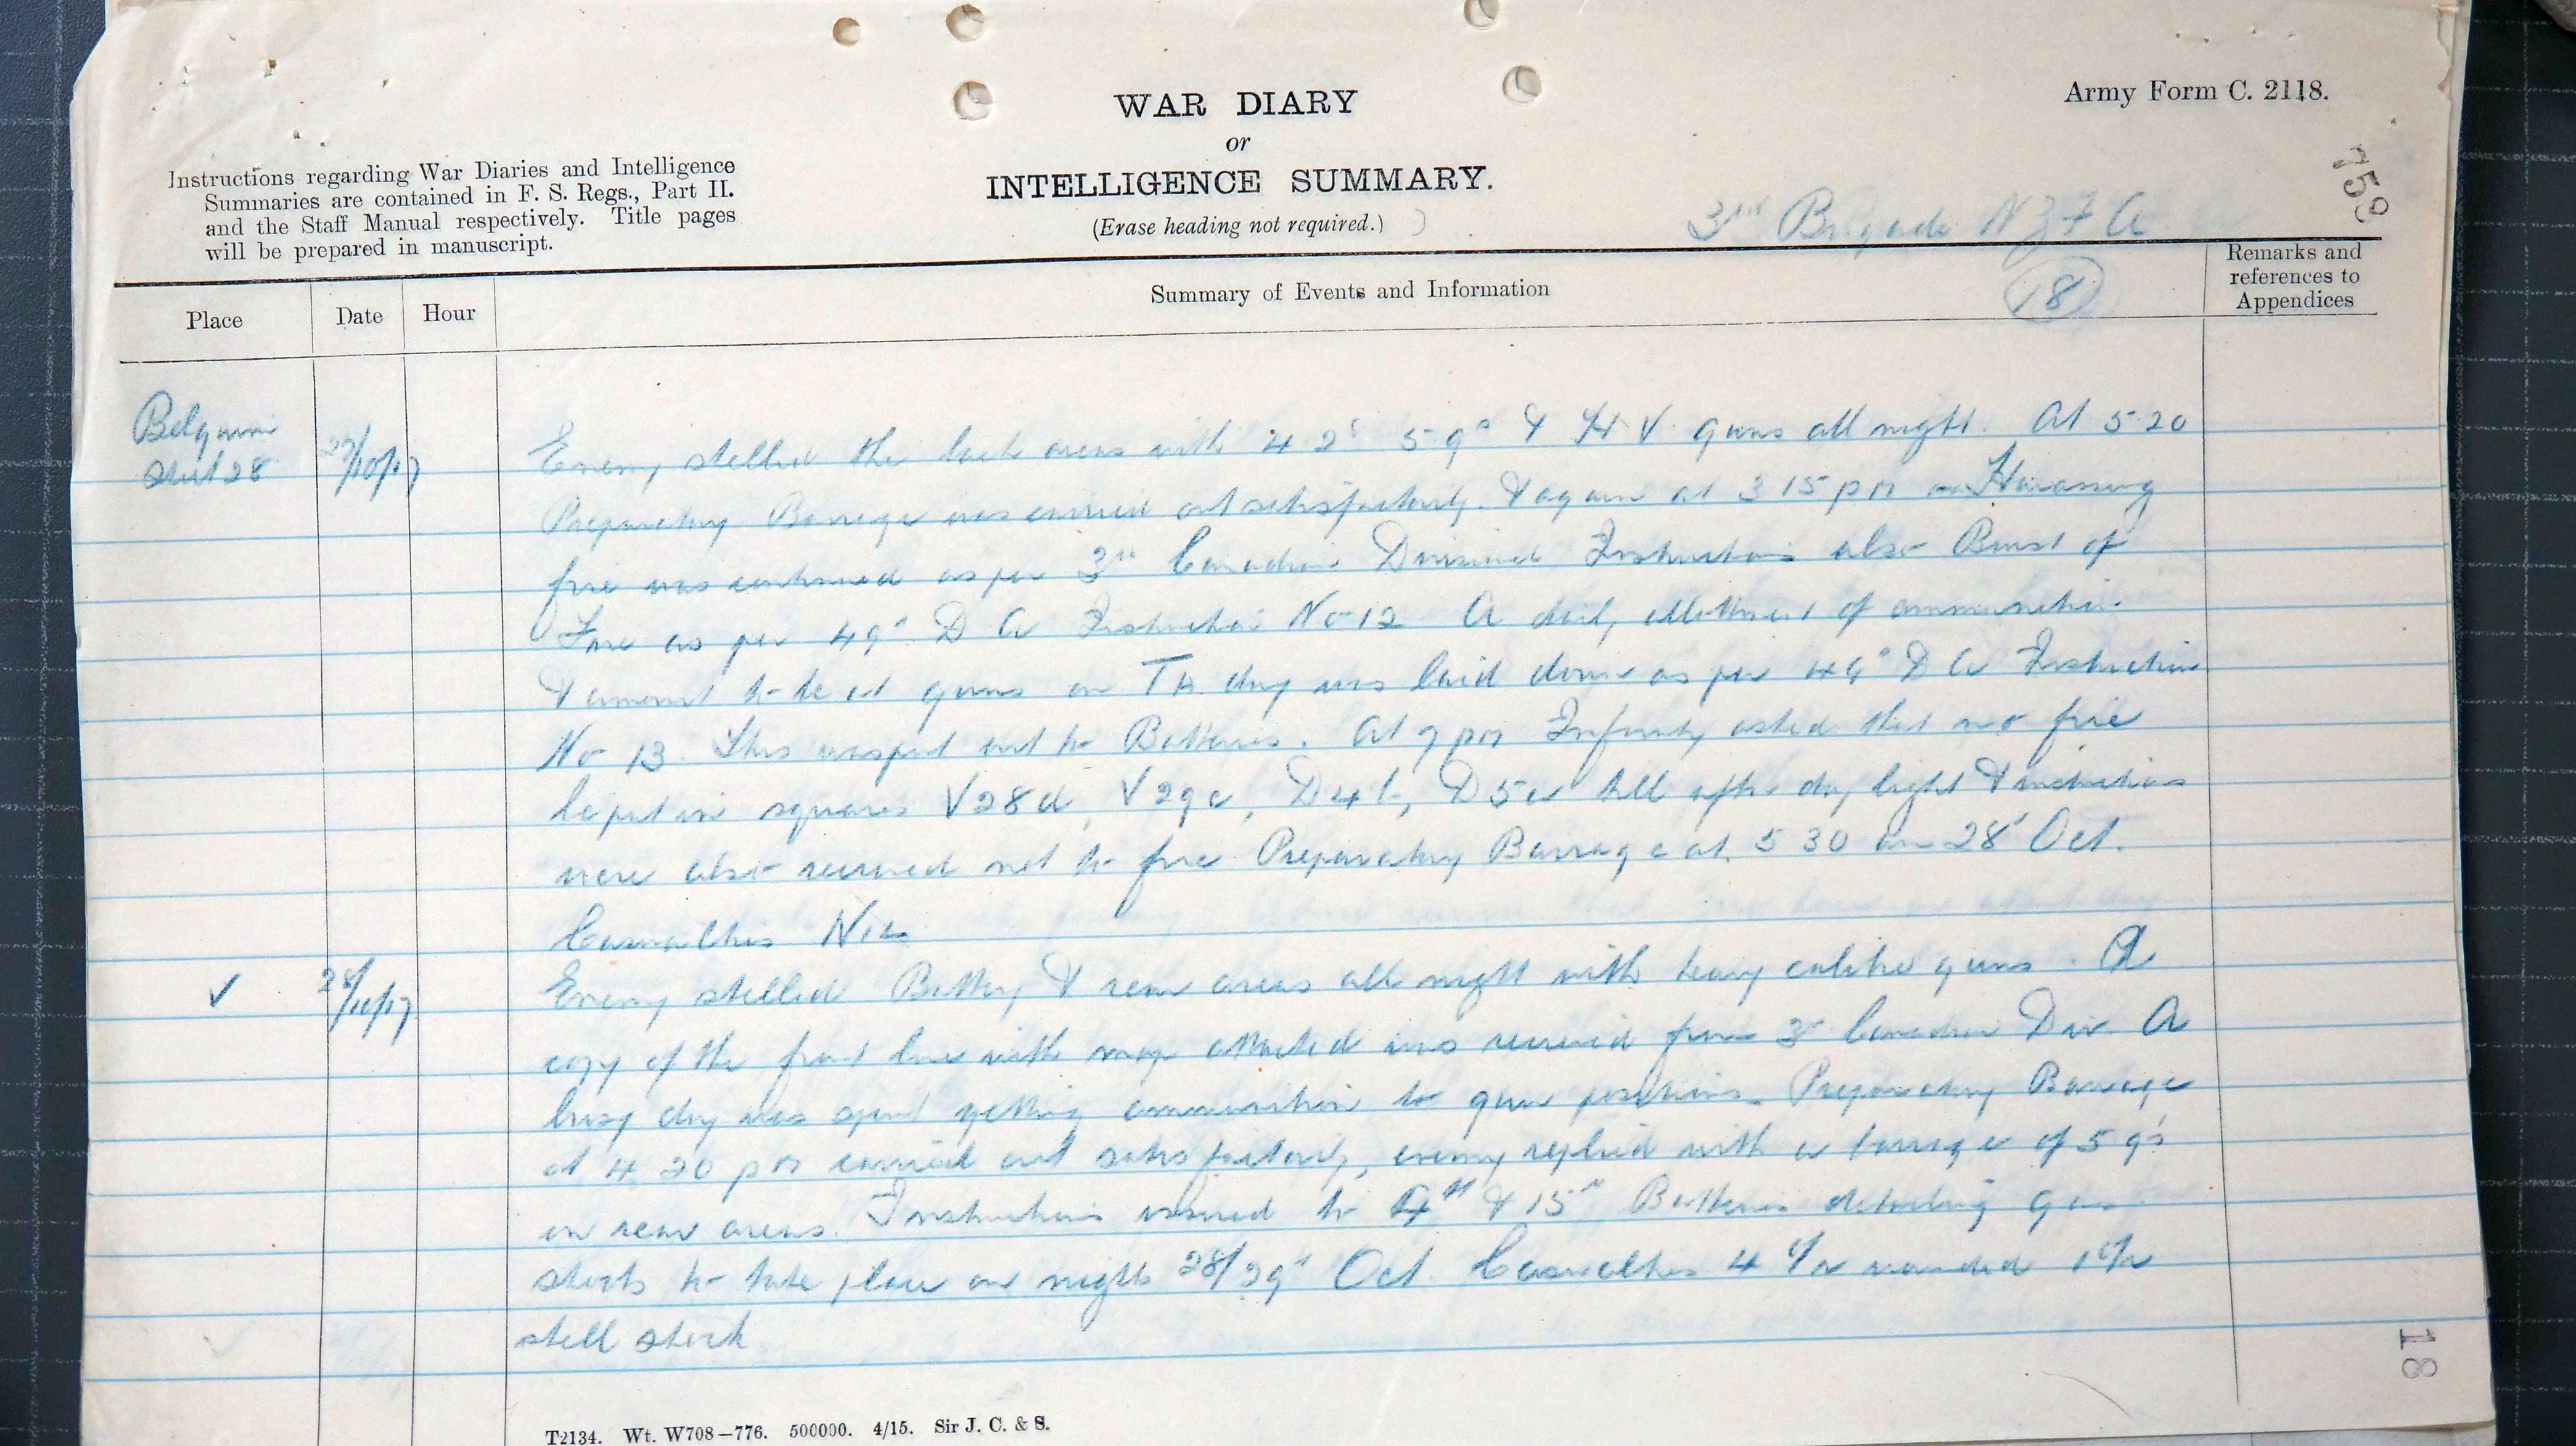 Army Form C. 2118.
WAR DIARY
or
INTELLIGENCE SUMMARY.
(Erase heading not required.)
Instructions regarding War Diaries and Intelligence
Summaries are contained in F. S. Regs., Part II.
and the Staff Manual respectively. Title pages
will be prepared in manuscript.
759
3rd Brigade N Z F A
18
Place
Date
Hour
Summary of Events and Information
Remarks and
references to
Appendices
Belgium
Sheet 28
27/10/17
Enemy shelled the back areas with 4.2s 5.9s & H.V. guns all night. At 5 20
Preparatory Barrage was carried out satisfactorily. & again at 3 15 pm Harassing
fire was continued as per 3rd Canadian Divisional Instructions also Burst of
Fire as per 49th D A Instruction No 12 A daily allottment of ammunition
& amount to be at guns on day was laid down as per 49th D A Instruction
No 13. This was sent out to Batteries. At 9 pm Infantry asked that no fire
be put in squares V28d, V29c, D4b, D5a till after day light & instructions
were also received not to fire Preparatory Barrage at 5 30 am 28th Oct.
Casualties Nil
✓
28/10/17
Enemy shelled Battery & rear areas all night with heavy calibre guns. A
copy of the front line with map attached was received from 3rd Canadian Div A
busy day was spent getting ammunition to gun positions. Preparatory Barrage
at 4 20 pm carried out satisfactorily, enemy replied with a barrage of 5 9s
on rear areas. Instructions issued to 4th & 15th Batteries detailing gas
shoots to take place on night 28/29th Oct. Casualties 4 O/R wounded 1 O/R
shell shock
T2134. Wt. W708—776. 500000. 4/15. Sir J. C. & S.
18